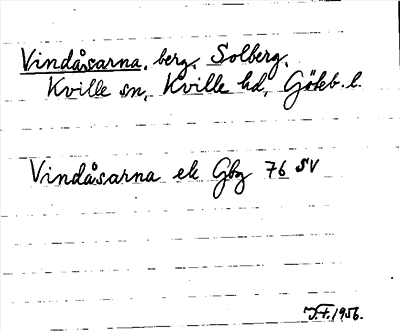 Vindåsarna, berg, Solberg,
Kville sn, Kville hd, Göteb. l.
Vindåsarna ek Gbg 76 SV
J.F. 1956.